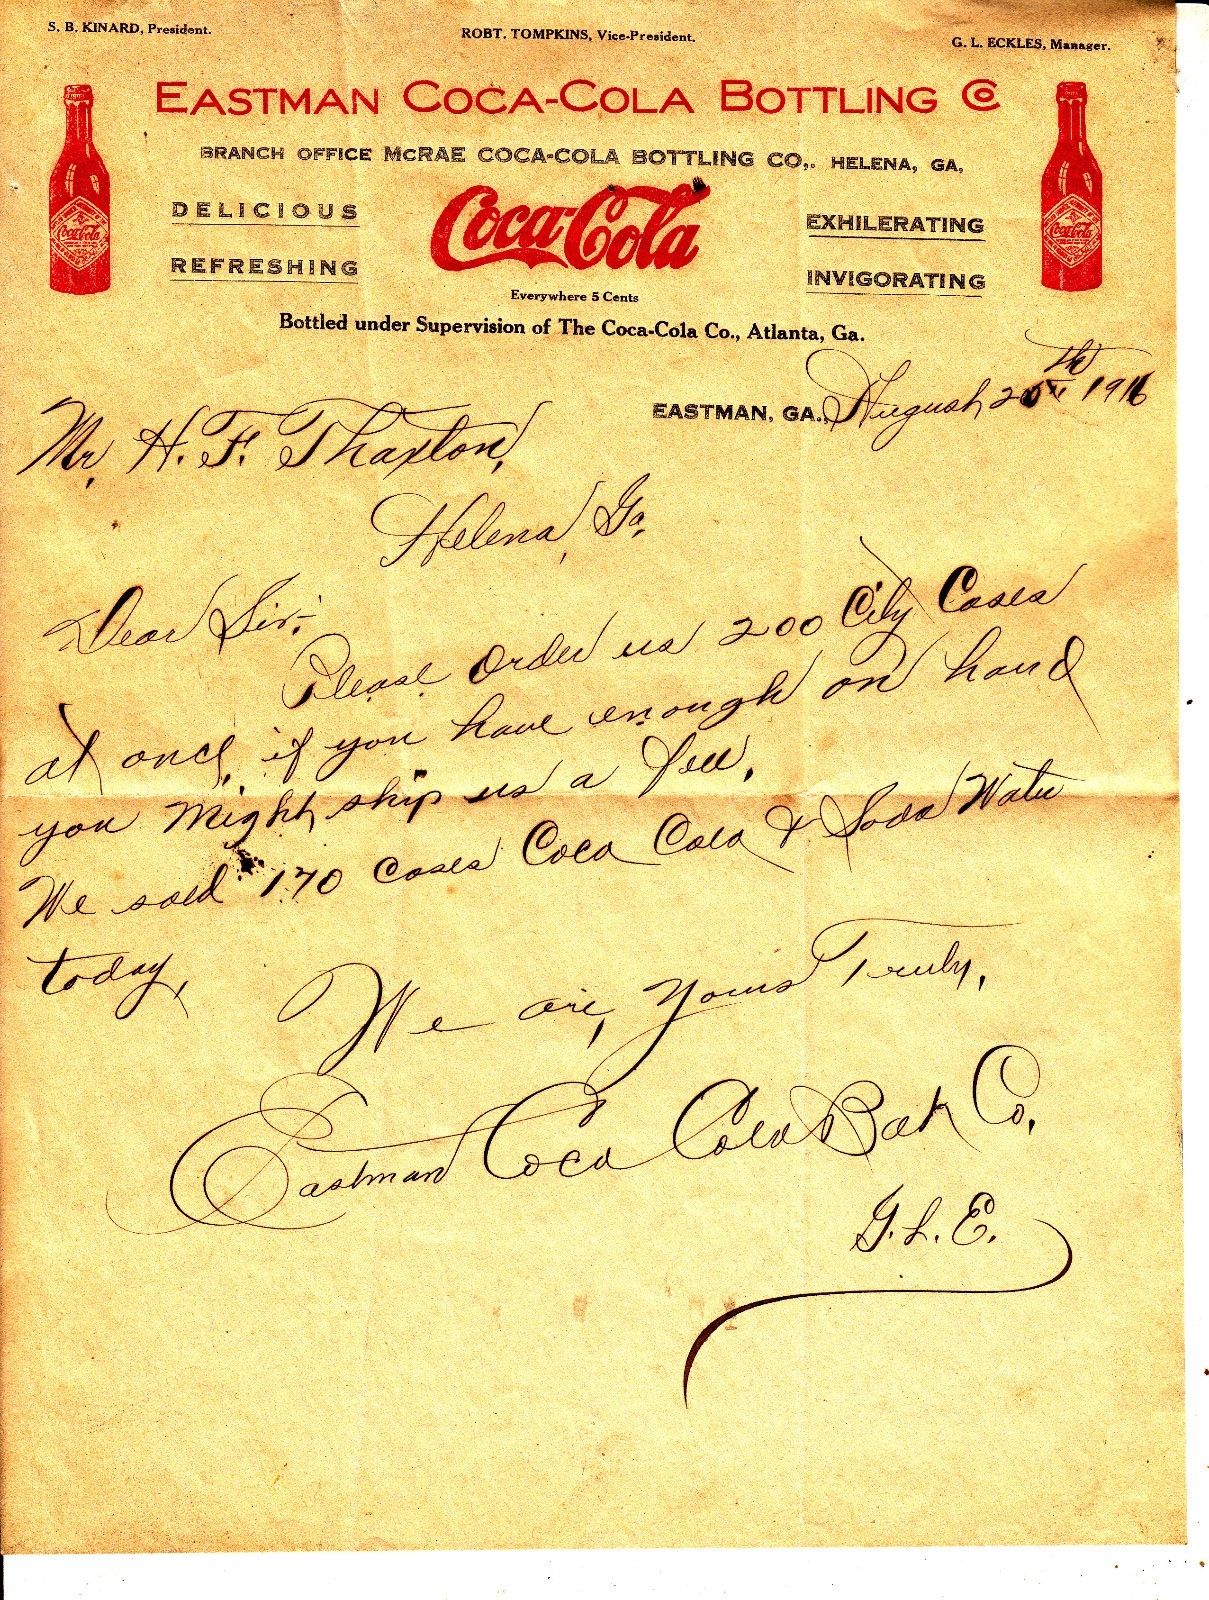 S. B. KINARD, President.
ROBT. TOMPKINS, Vice-President.
G. L. ECKLES, Manager.
EASTMAN COCA-COLA BOTTLING CO
BRANCH OFFICE McRAE COCA-COLA BOTTLING CO,. HELENA, GA,
DELICIOUS
Coca-Cola
EXHILERATING
REFRESHING
INVIGORATING
Coca-Cola
Coca-Cola
Everywhere 5 Cents
Bottled under Supervision of The Coca-Cola Co., Atlanta, Ga.
EASTMAN, GA., August 20th 1916
Mr. H. F. Thaxton,
Helena, Ga.
Dear Sir:-
Please order us 200 City Cases
at once, if you have enough on hand
you might ship us a few.
We sold 170 cases Coca Cola & Soda Water
today,
We are, Yours Truly,
Eastman Coca Cola Co.
G. L. E.